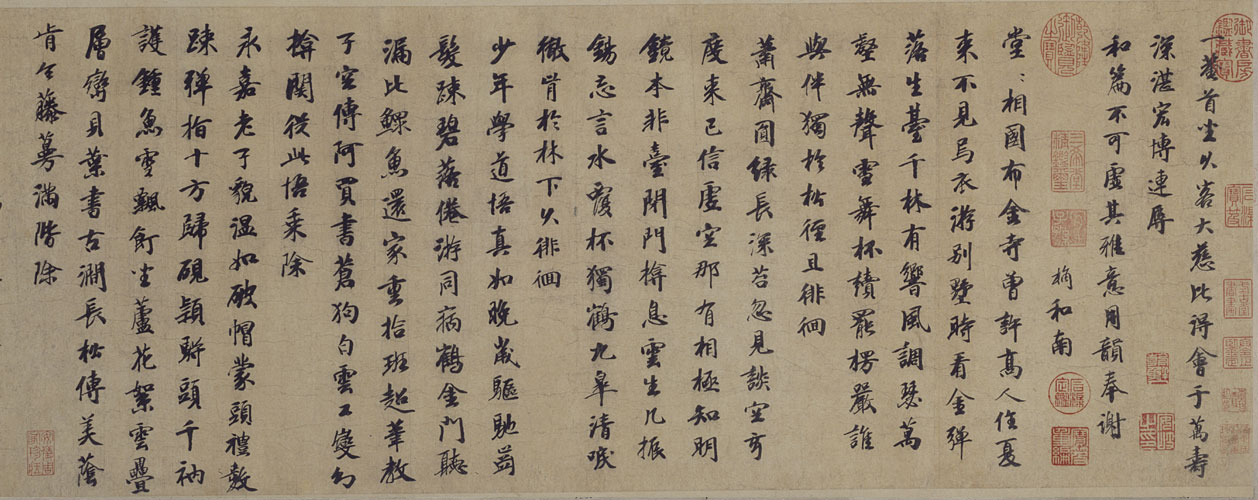 一菴首坐久客大慈比得會于萬壽
深湛宏博連辱
和篇不可虛其雅意用韻奉謝
和南
堂〻相國布金寺曾許高人住夏
來不見烏衣游別墅時看金彈
落生臺千林有響風調瑟萬
壑無聲雪舞杯讀罷楞嚴誰
與伴獨於松徑且徘徊
蕭齋面綠長深苔忽見談空寄
度来已信虛空那有相極知明
鏡本非臺閉門揜息雲生几振
錫忘言水覆杯獨鶴九皋清唳
徹肯於林下久徘徊
少年學道悟真如晚歲驅馳
髮疎碧落倦游同病鶴金門聽
漏比鰥魚還家重拾班超筆教
子空傳阿買書蒼狗白雲工變幻
揜關從此悟乘除
永嘉老子貌溫如破帽蒙頭禮數
疎彈指十方歸硯頴駢頭千衲
護鍾魚雪飄飣坐蘆花絮雲疊
層巒貝葉書古澗長松傳美蔭
肯令藤蔓滿階除
御書房鑑藏寶
嘉慶御覽之寶
三希堂精鑑璽
宜子孫
石渠寶笈
石渠定鑑
寶笈重編